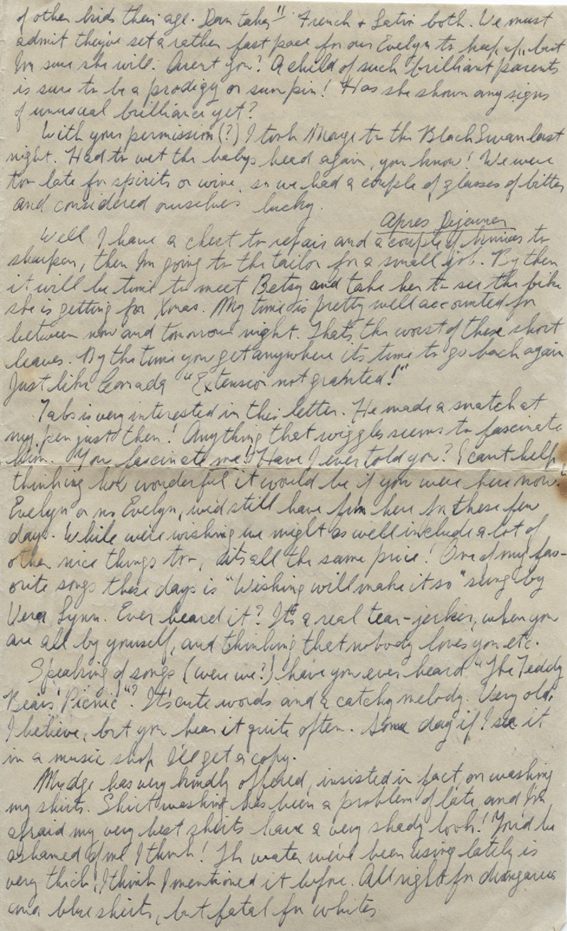 of other kids their age. Dan takes" French & Latin both. We must
admit they've set a rather fast pace for our Evelyn to keep up, but
I'm sure she will. Aren't you? A child of such brilliant parents
is sure to be a prodigy or sumpin! Has she shown any signs
of unusual brilliance yet?
With your permission (?) I took Madge to the Black Swan last
night. Had to wet the babys head again, you know! We were
too late for spirits or wine, so we had a couple of glasses of bitter
and considered ourselves lucky.
Apres Dejeuner
Well I have a chest to repair and a couple of knives to
sharpen, then I'm going to the tailor for a small job. By then
it will be time to meet Betsy and take her to see the bike
she is getting for Xmas. My time is pretty well accounted for
between now and tomorrow night. That's the worst of these short
leaves. By the time you get anywhere its time to go back again
Just like Canada "Extension not granted!"
Tabs is very interested in this letter. He made a snatch at
my pen just then! Anything that wiggles seems to fascinate
him. You fascinate me! Have I ever told you? I can't help
thinking how wonderful it would be if you were here now.
Evelyn or no Evelyn, we'd still have fun here in these few
days. While we're wishing we might as well include a lot of
other nice things too, its all the same price! One of my fav-
orite songs these days is "Wishing will make it so" sung by
Vera Lynn. Ever heard it? It's a real tear-jerker, when you
are all by yourself, and thinking that nobody loves you etc.
Speaking of songs (were we?) have you ever heard "The Teddy
Bears' Picnic"? It's cute words and a catchy melody. Very old,
I believe, but you hear it quite often. Some day if I see it
in a music shop I'll get a copy.
Madge has very kindly offered, insisted in fact, on washing
my shirts. Shirt washing has been a problem of late, and I'm
afraid my very best shirts have a very shady look! You'd be
ashamed of me I think! The water we've been using lately is
very thick, I think I mentioned it before. All right for dungarees
and blue shirts, but fatal for whites